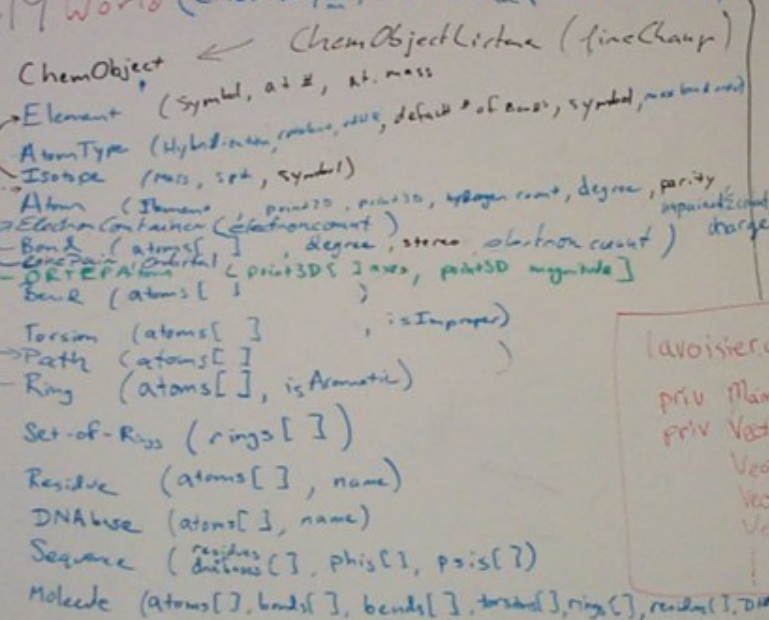 World (
ChemObject ← ChemObjectListener (fireChange)
Element (symbol, at #, at. mass
AtomType (Hybridization, default # of Bonds, symbol, max bond
Isotope (mass, spin, symbol)
Atom ( point2D, point3D, hydrogen count, degree, parity
charge
ElectronContainer (electroncount)
Bond (atoms[ ] degree, stereo electron count)
LonePair Orbital
ORTEPAtom (point3D[ ] axes, point3D magnitude]
Bend (atoms[ ] )
Torsion (atoms[ ] , isImproper)
Path (atoms[ ] )
Ring (atoms[ ], isAromatic)
Set-of-Rings (rings[ ])
Residue (atoms[ ], name)
DNAbase (atoms[ ], name)
Sequence (residues dnabases[ ], phis[ ], psis[ ])
Molecule (atoms[ ], bonds[ ], bends[ ], torsions[ ], rings[ ], residues[ ], DNA
lavoisier.
priv Main
priv Vect
Vec
Vec
Ve